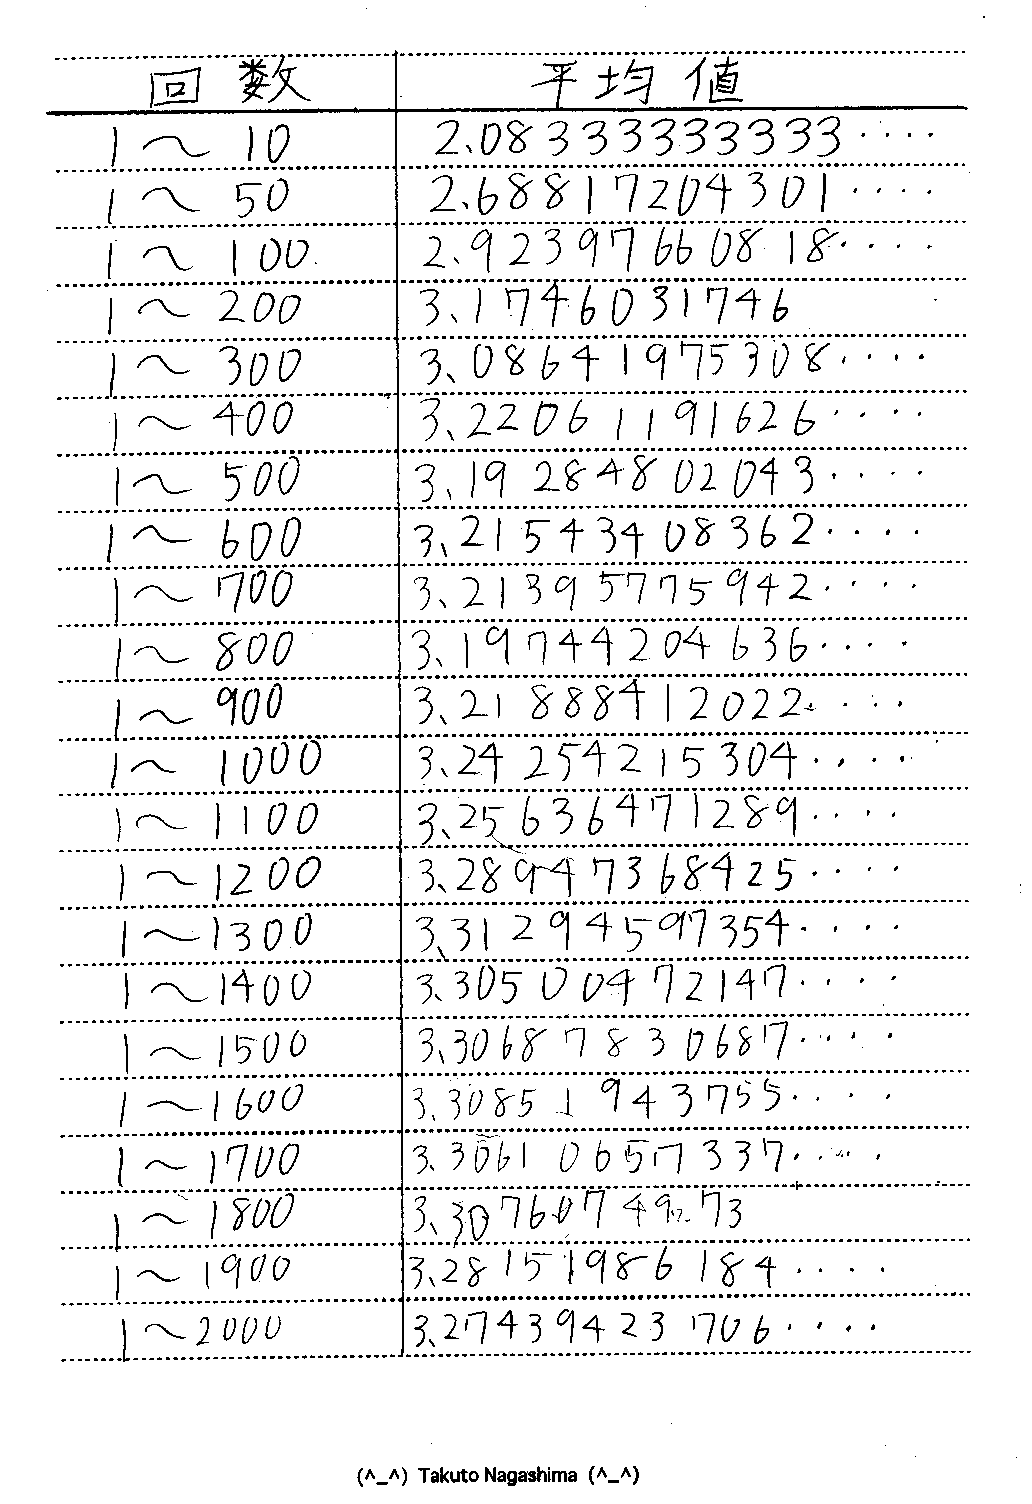 回数 平均値
1〜10 2.08333333333‥‥
1〜50 2.68817204301‥‥
1〜100 2.92397660818‥‥
1〜200 3.1746031746
1〜300 3.08641975308‥‥
1〜400 3.22061191626‥‥
1〜500 3.19284802043‥‥
1〜600 3.21543408362‥‥
1〜700 3.21395775942‥‥
1〜800 3.19744204636‥‥
1〜900 3.21888412022‥‥
1〜1000 3.24254215304‥‥
1〜1100 3.25636471289‥‥
1〜1200 3.28947368425‥‥
1〜1300 3.31294597354‥‥
1〜1400 3.30500472147‥‥
1〜1500 3.30687830687‥‥
1〜1600 3.30851943755‥‥
1〜1700 3.30610657337‥‥
1〜1800
1〜1900 3.28151986184‥‥
1〜2000 3.27439423706‥‥
(^_^) Takuto Nagashima (^_^)